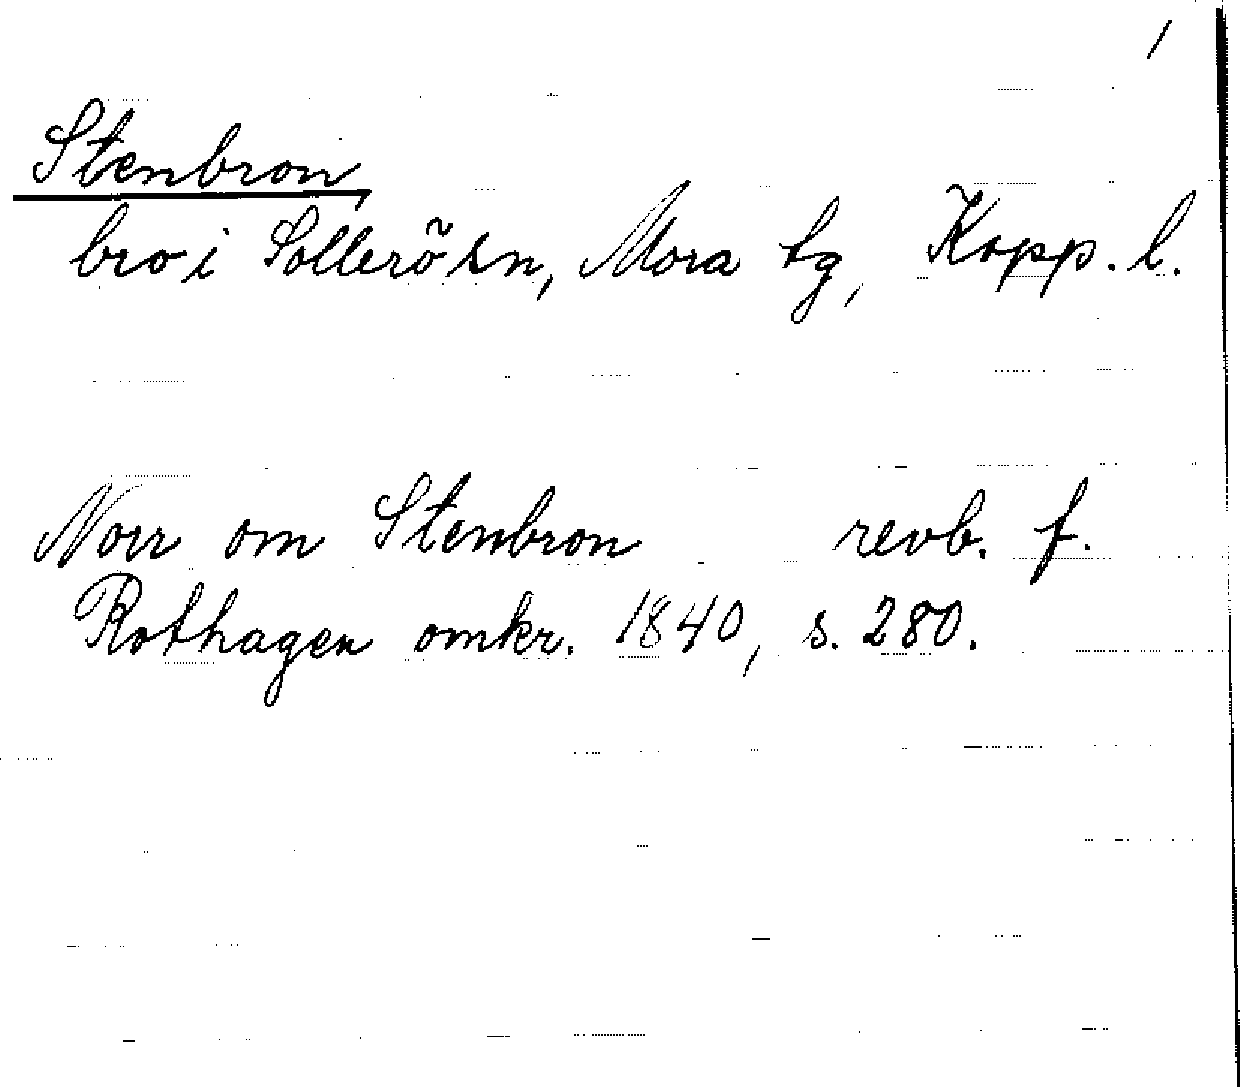 /
Stenbron,
bro i Sollerö sn, Mora tg, Kopp. l.
Norr om Stenbron revb. f.
Rothagen omkr. 1840, s. 280.